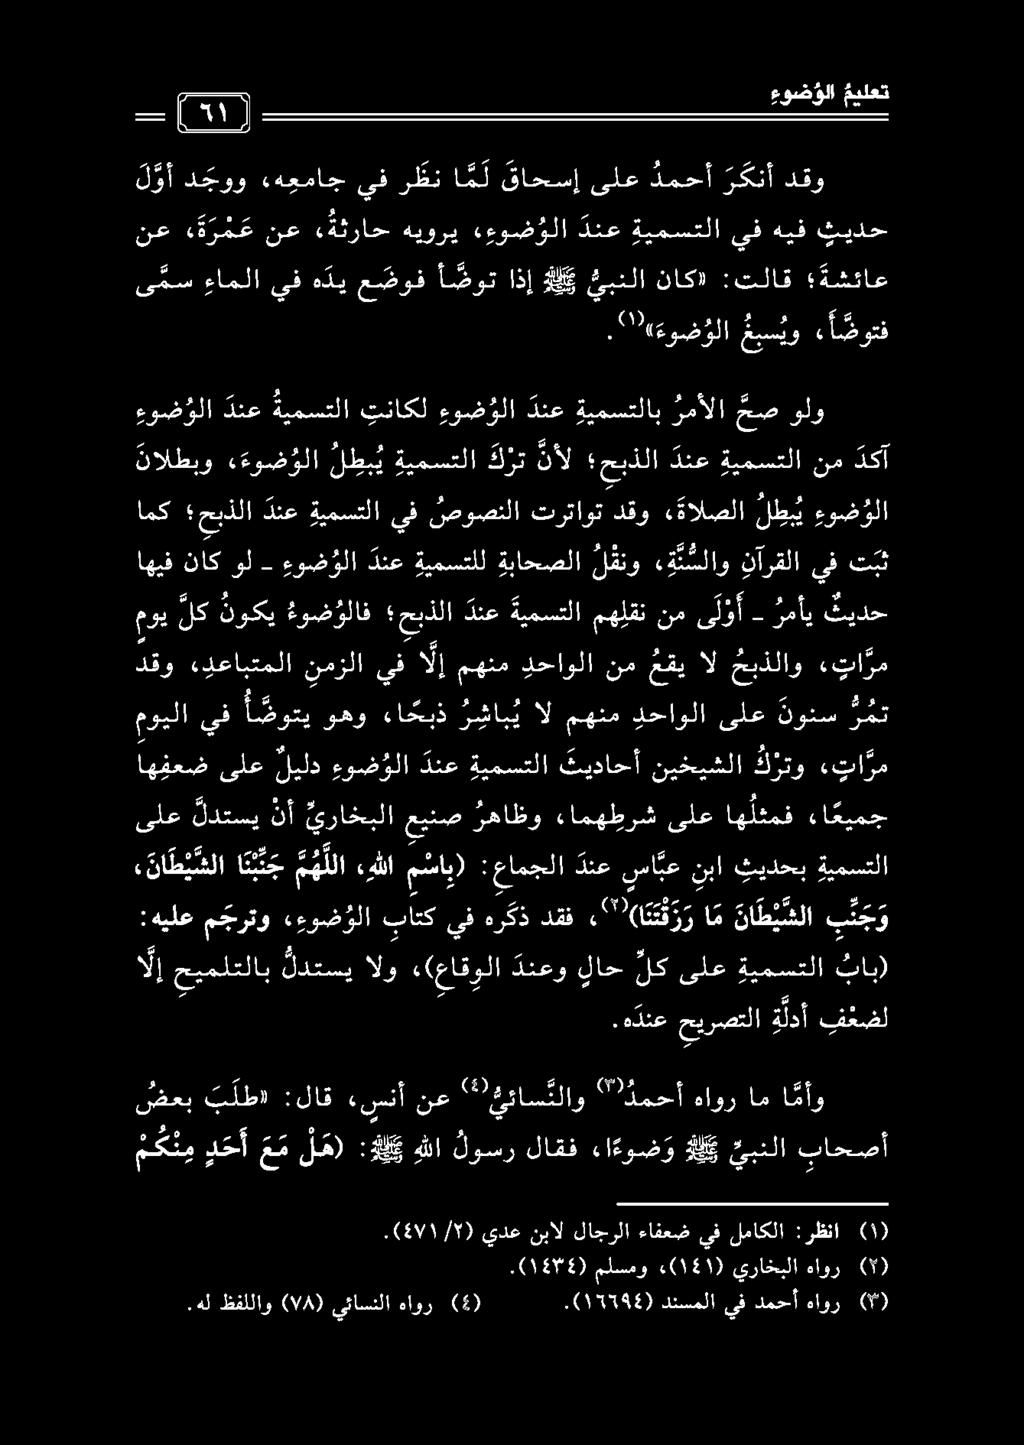 تعليمُ الوُضوءِ
٦١
وقد أنكَرَ أحمدُ على إسحاقَ لَمَّا نظَر في جامعِه، ووجَد أوَّلَ
حديثٍ فيه في التسميةِ عندَ الوُضوءِ، يرويه حارثةُ، عن عَمْرَةَ، عن
عائشةَ؛ قالت: «كان النبيُّ ﷺ إذا توضَّأ فوضَع يدَه في الماءِ سمَّى
فتوضَّأَ، ويُسبِغُ الوُضوءَ»(١).
ولو صحَّ الأمرُ بالتسميةِ عندَ الوُضوءِ لكانتِ التسميةُ عندَ الوُضوءِ
آكدَ من التسميةِ عندَ الذبحِ؛ لأنَّ ترْكَ التسميةِ يُبطِلُ الوُضوءَ، وبطلانَ
الوُضوءِ يُبطِلُ الصلاةَ، وقد تواترت النصوصُ في التسميةِ عندَ الذبحِ؛ كما
ثبَت في القرآنِ والسُّنَّةِ، ونقْلُ الصحابةِ للتسميةِ عندَ الوُضوءِ - لو كان فيها
حديثٌ يأمرُ - أَوْلَى من نقلِهم التسميةَ عندَ الذبحِ؛ فالوُضوءُ يكونُ كلَّ يومٍ
مرَّاتٍ، والذبحُ لا يقعُ من الواحدِ منهم إلَّا في الزمنِ المتباعدِ، وقد
تمُرُّ سنونَ على الواحدِ منهم لا يُباشِرُ ذبحًا، وهو يتوضَّأُ في اليومِ
مرَّاتٍ، وترْكُ الشيخين أحاديثَ التسميةِ عندَ الوُضوءِ دليلٌ على ضعفِها
جميعًا، فمثلُها على شرطِهما، وظاهرُ صنيعِ البخاريِّ أنْ يستدلَّ على
التسميةِ بحديثِ ابنِ عبَّاسٍ عندَ الجماعِ: (بِاسْمِ اللهِ، اللَّهُمَّ جَنِّبْنَا الشَّيْطَانَ،
وَجَنِّبِ الشَّيْطَانَ مَا رَزَقْتَنَا)(٢)، فقد ذكَره في كتابِ الوُضوءِ، وترجَم عليه:
(بابُ التسميةِ على كلِّ حالٍ وعندَ الوِقاعِ)، ولا يستدلُّ بالتلميحِ إلَّا
لضعْفِ أدلَّةِ التصريحِ عندَه.
وأمَّا ما رواه أحمدُ(٣) والنَّسائيُّ(٤) عن أنسٍ، قال: «طلَبَ بعضُ
أصحابِ النبيِّ ﷺ وَضوءًا، فقال رسولُ اللهِ ﷺ: (هَلْ مَعَ أَحَدٍ مِنْكُمْ
(١) انظر: الكامل في ضعفاء الرجال لابن عدي (٢/ ٤٧١).
(٢) رواه البخاري (١٤١)، ومسلم (١٤٣٤).
(٣) رواه أحمد في المسند (١٦٦٩٤). (٤) رواه النسائي (٧٨) واللفظ له.